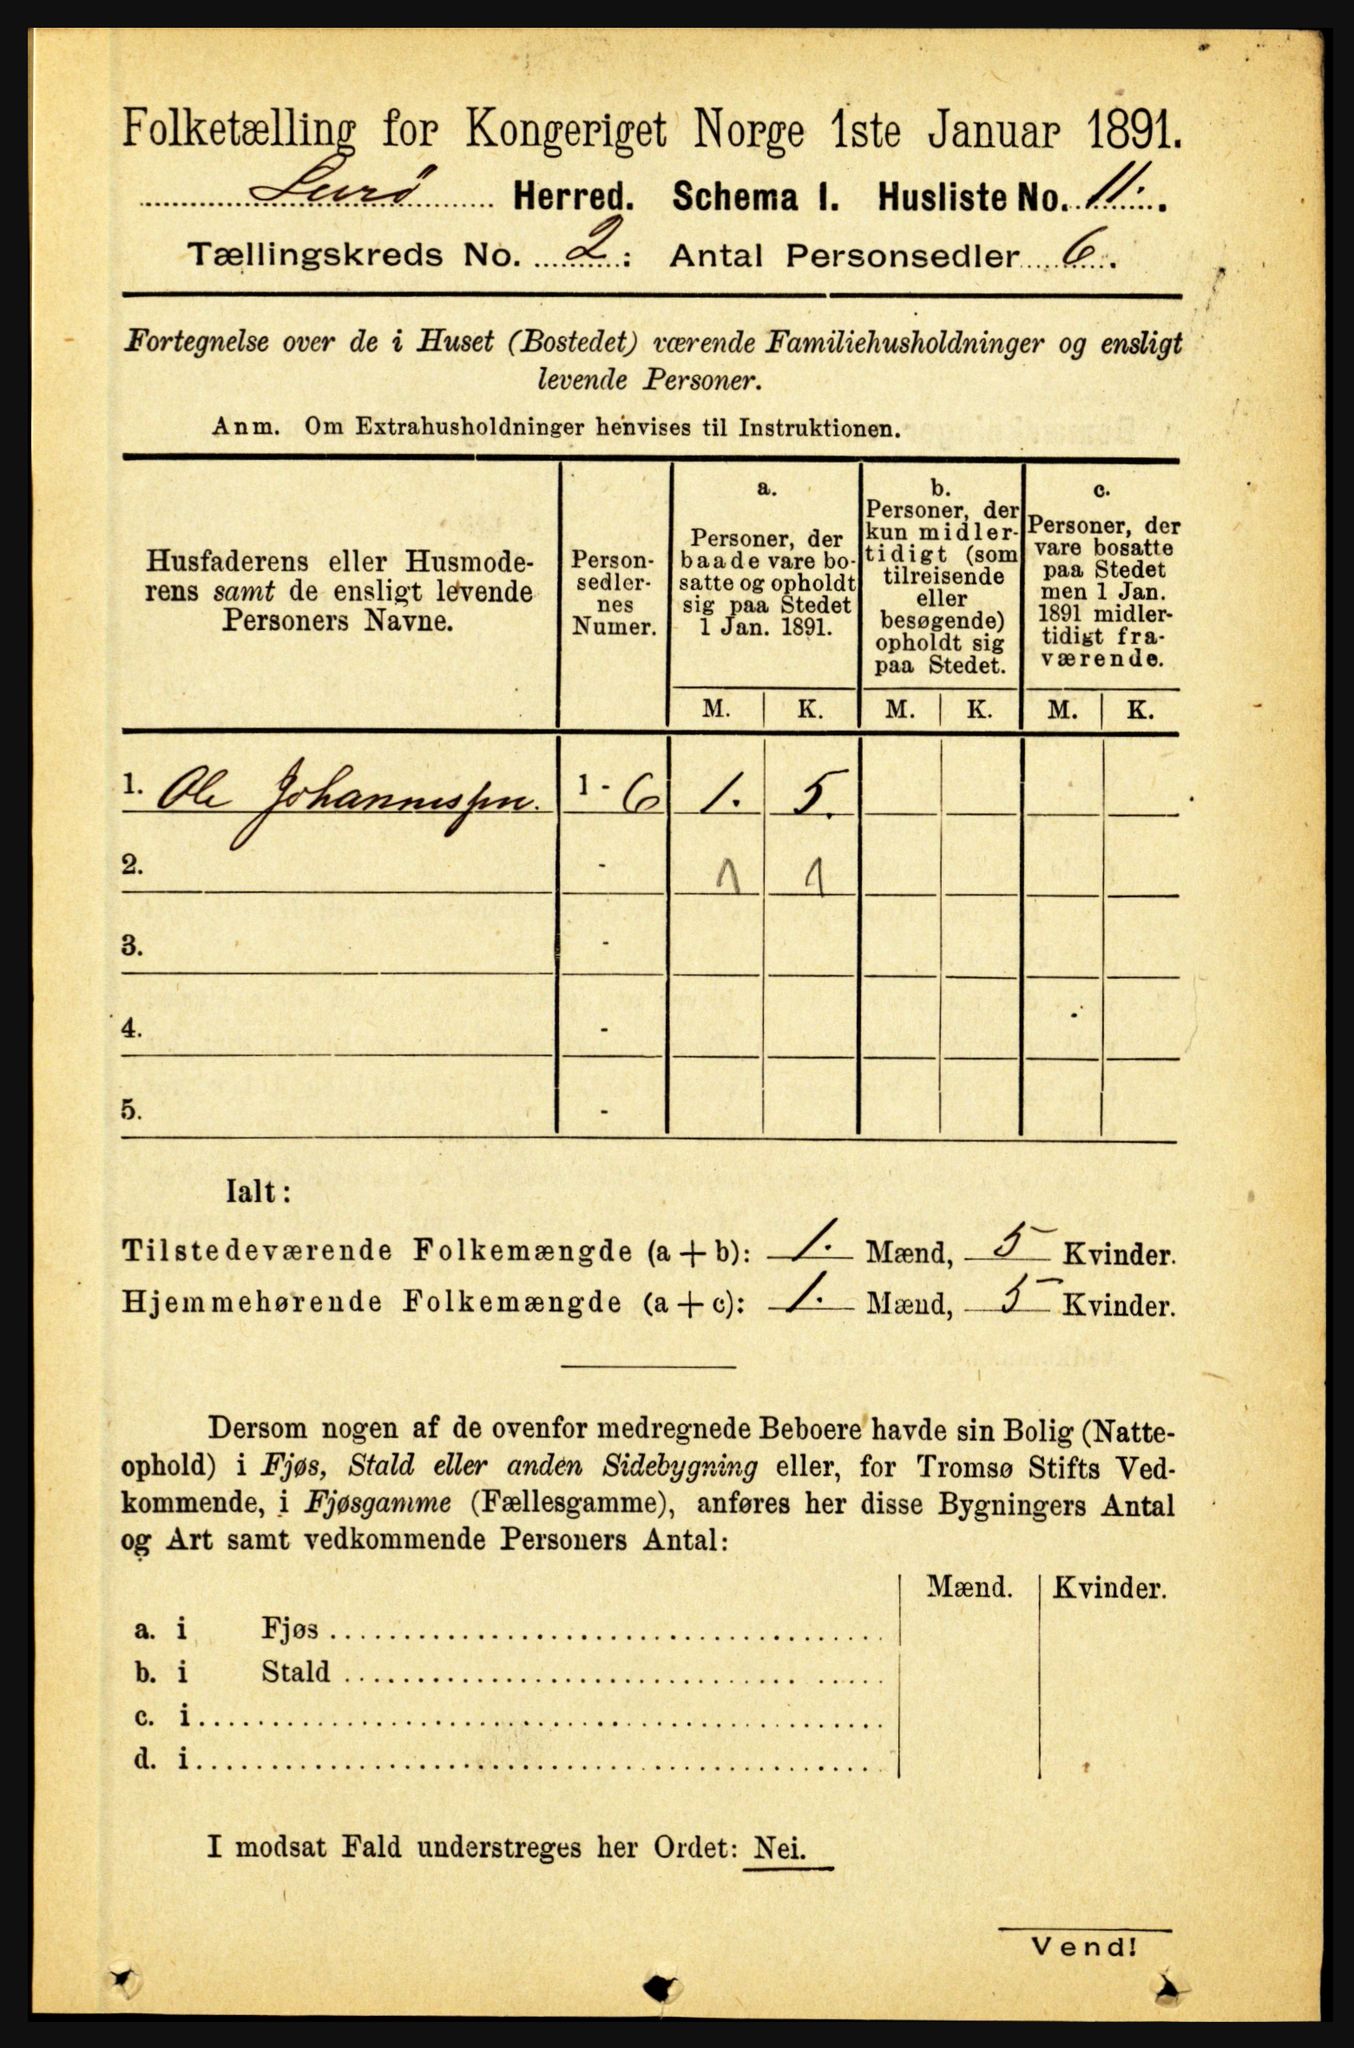 Folketælling for Kongeriget Norge 1ste Januar 1891.
Lurø Herred. Schema I. Husliste No. 11.
Tællingskreds No. 2: Antal Personsedler 6.
Fortegnelse over de i Huset (Bostedet) værende Familiehusholdninger og ensligt
levende Personer.
Anm. Om Extrahusholdninger henvises til Instruktionen.
Husfaderens eller Husmode-
rens samt de ensligt levende
Personers Navne.
Person-
sedler-
nes
Numer.
a.
Personer, der
baade vare bo-
satte og opholdt
sig paa Stedet
1 Jan. 1891.
b.
Personer, der
kun midler-
tidigt (som
tilreisende
eller
besøgende)
opholdt sig
paa Stedet.
c.
Personer, der
vare bosatte
paa Stedet
men 1 Jan.
1891 midler-
tidigt fra-
værende.
M. K. M. K. M. K.
1. Ole Johannessen. 1 - 6 1. 5.
2. - 1 1
3. -
4. -
5. -
Ialt:
Tilstedeværende Folkemængde (a + b): 1. Mænd, 5 Kvinder.
Hjemmehørende Folkemængde (a + c): 1. Mænd, 5 Kvinder.
Dersom nogen af de ovenfor medregnede Beboere havde sin Bolig (Natte-
ophold) i Fjøs, Stald eller anden Sidebygning eller, for Tromsø Stifts Ved-
kommende, i Fjøsgamme (Fællesgamme), anføres her disse Bygningers Antal
og Art samt vedkommende Personers Antal:
Mænd. Kvinder.
a. i Fjøs
b. i Stald
c. i
d. i
I modsat Fald understreges her Ordet: Nei.
Vend!